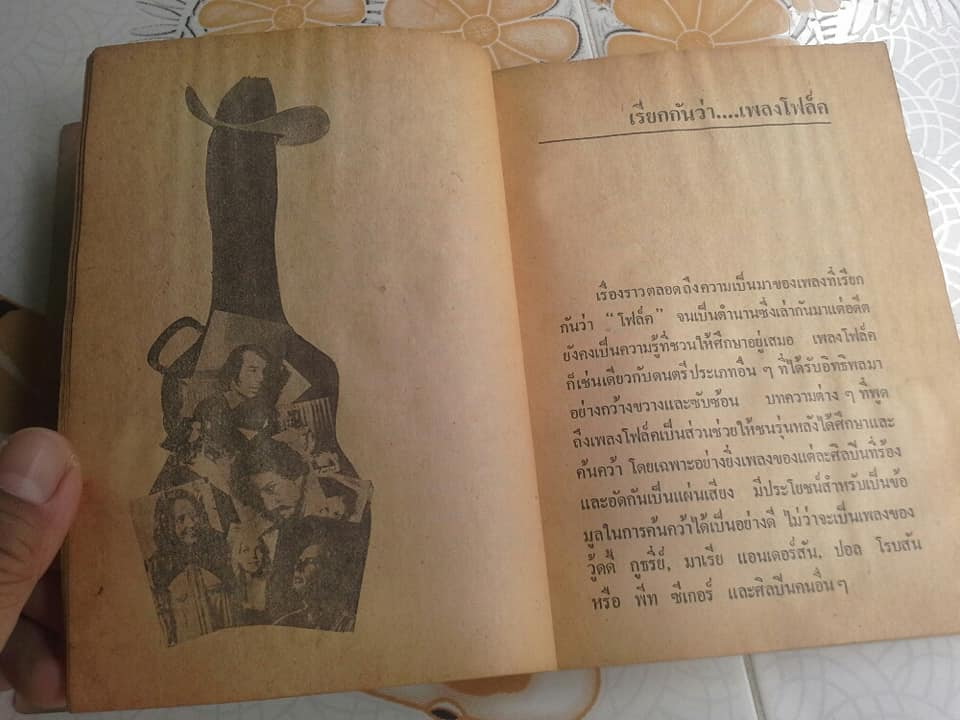 เรียกกันว่า....เพลงโฟล็ค
เรื่องราวตลอดถึงความเป็นมาของเพลงที่เรียก
กันว่า “โฟล็ค” จนเป็นตำนานซึ่งเล่ากันมาแต่อดีต
ยังคงเป็นความรู้ที่ชวนให้ศึกษาอยู่เสมอ เพลงโฟล็ค
ก็เช่นเดียวกับดนตรีประเภทอื่น ๆ ที่ได้รับอิทธิพลมา
อย่างกว้างขวางและซับซ้อน บทความต่าง ๆ ที่พูด
ถึงเพลงโฟล็คเป็นส่วนช่วยให้ชนรุ่นหลังได้ศึกษาและ
ค้นคว้า โดยเฉพาะอย่างยิ่งเพลงของแต่ละศิลปินที่ร้อง
และอัดกันเป็นแผ่นเสียง มีประโยชน์สำหรับเป็นข้อ
มูลในการค้นคว้าได้เป็นอย่างดี ไม่ว่าจะเป็นเพลงของ
วู้ดดี้ กูธรี่ย์, มาเรีย แอนเดอร์สัน, ปอล โรบสัน
หรือ พีท ซีเกอร์ และศิลปินคนอื่น ๆ